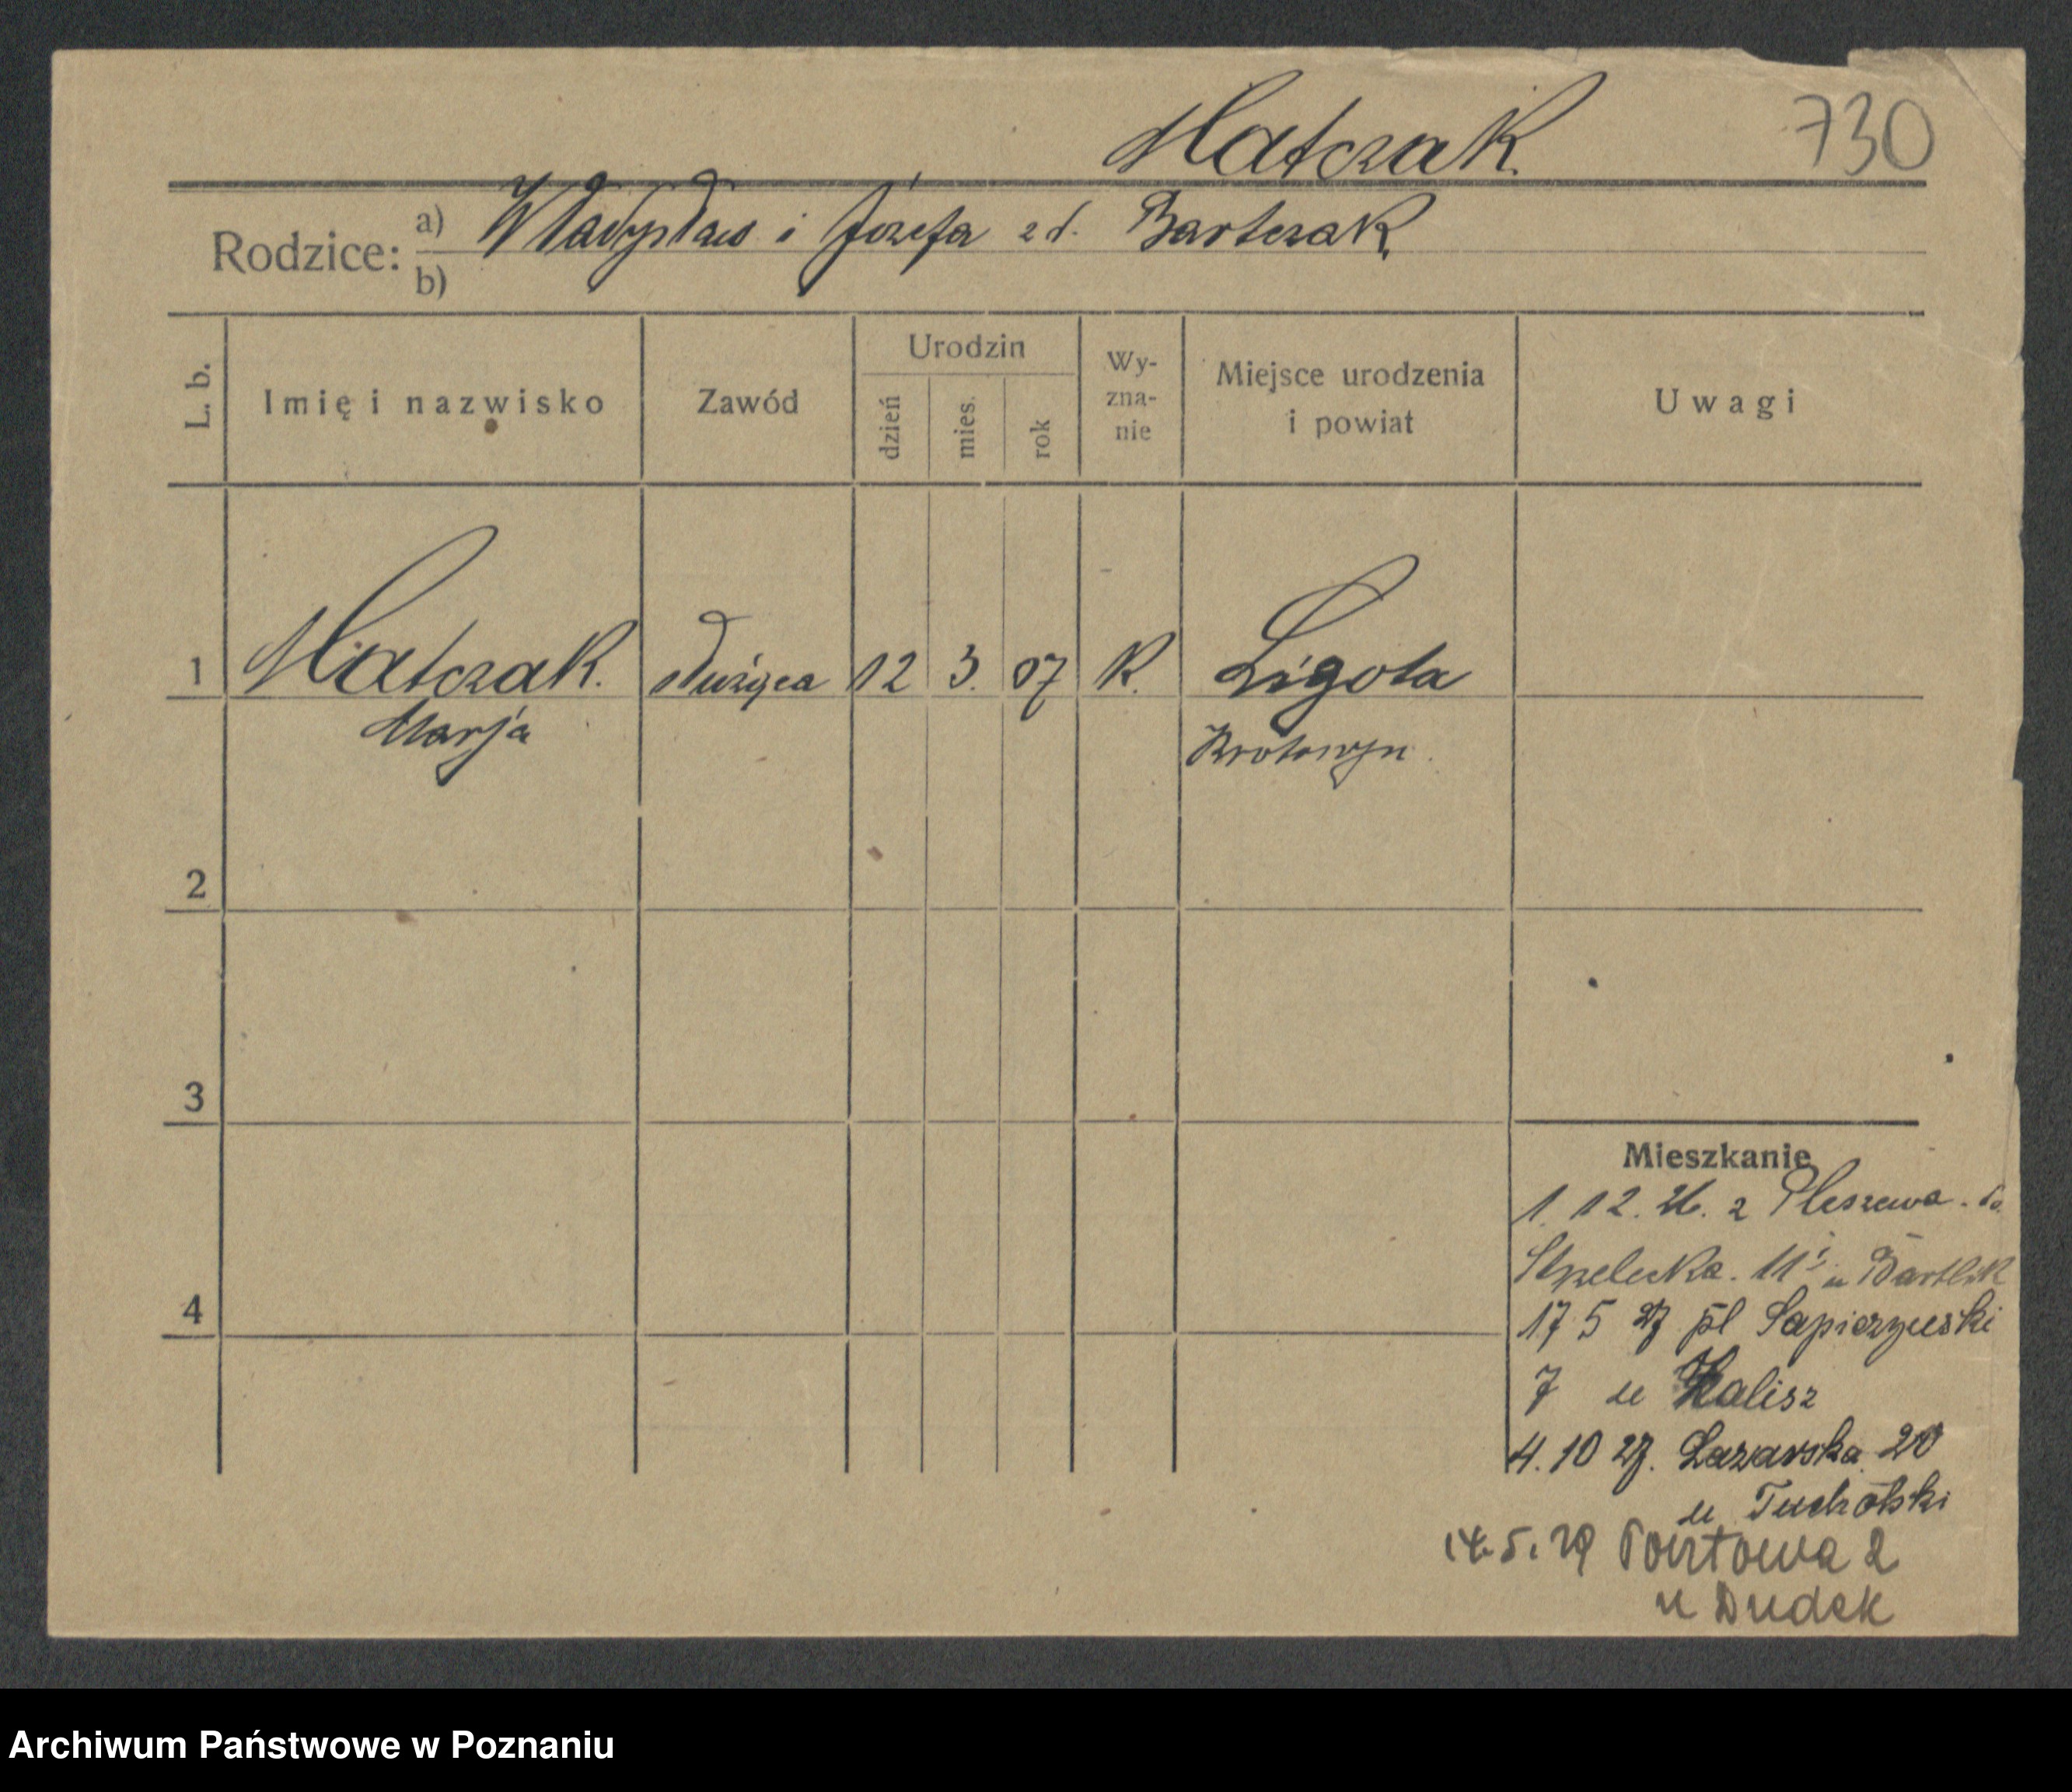 Matczak
730
Rodzice: a) Władysław i Józefa zd. Bartczak
b)
L. b. Imię i nazwisko Zawód Urodzin dzień mies. rok Wy-zna-nie Miejsce urodzenia i powiat Uwagi
1 Matczak służąca 12 3. 07 K. Ligota
Marja Krotoszyn.
2
3
Mieszkanie
1. 12. 26. z Pleszewa. do
Strzelecka. 11 u
4
17 5 27 pl Sapieżyński
7 u Kalisz
4. 10 27. Łazarska 20
u Tucholski
14. 5. 29 Pocztowa 2
u Dudek
Archiwum Państwowe w Poznaniu